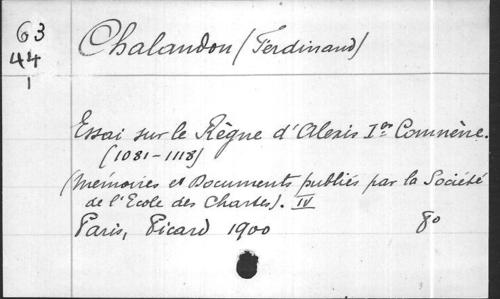 63
44
1
Chalandon (Ferdinand)
Essai sur le Règne d'Alexis Ier Comnène.
(1081-1118)
(Mémoires et Documents publiés par la Société
de l'Ecole des Chartes). IV
Paris, Picard 1900 8o